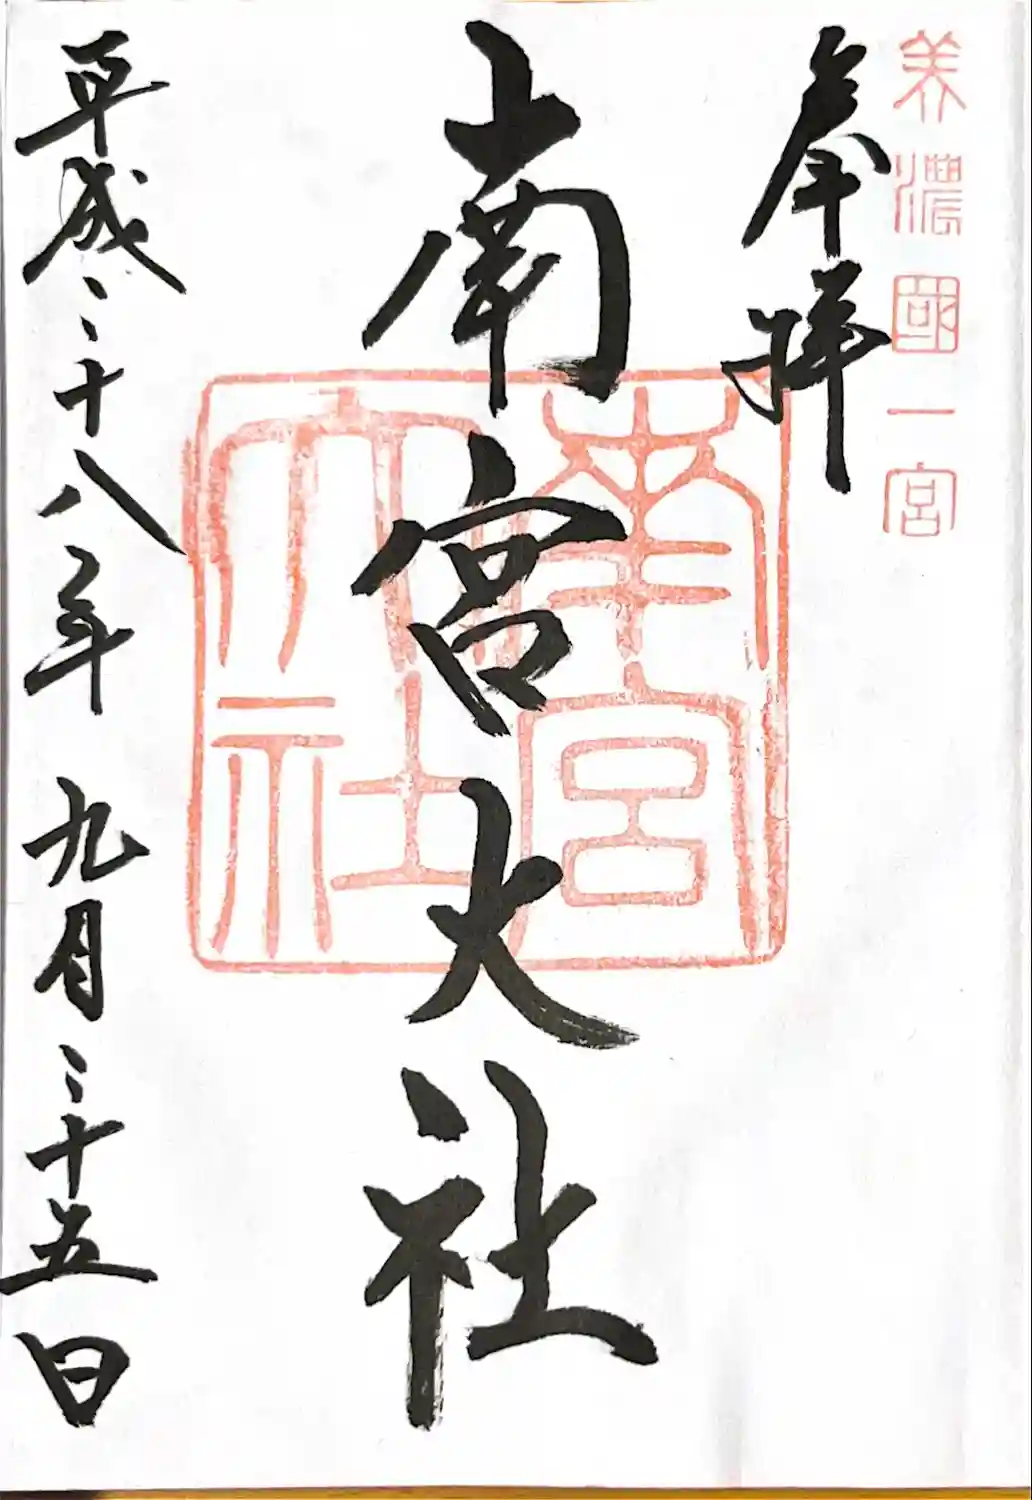 美濃國一宮
奉拝
南宮大社
南宮
大社
平成二十八年九月二十五日